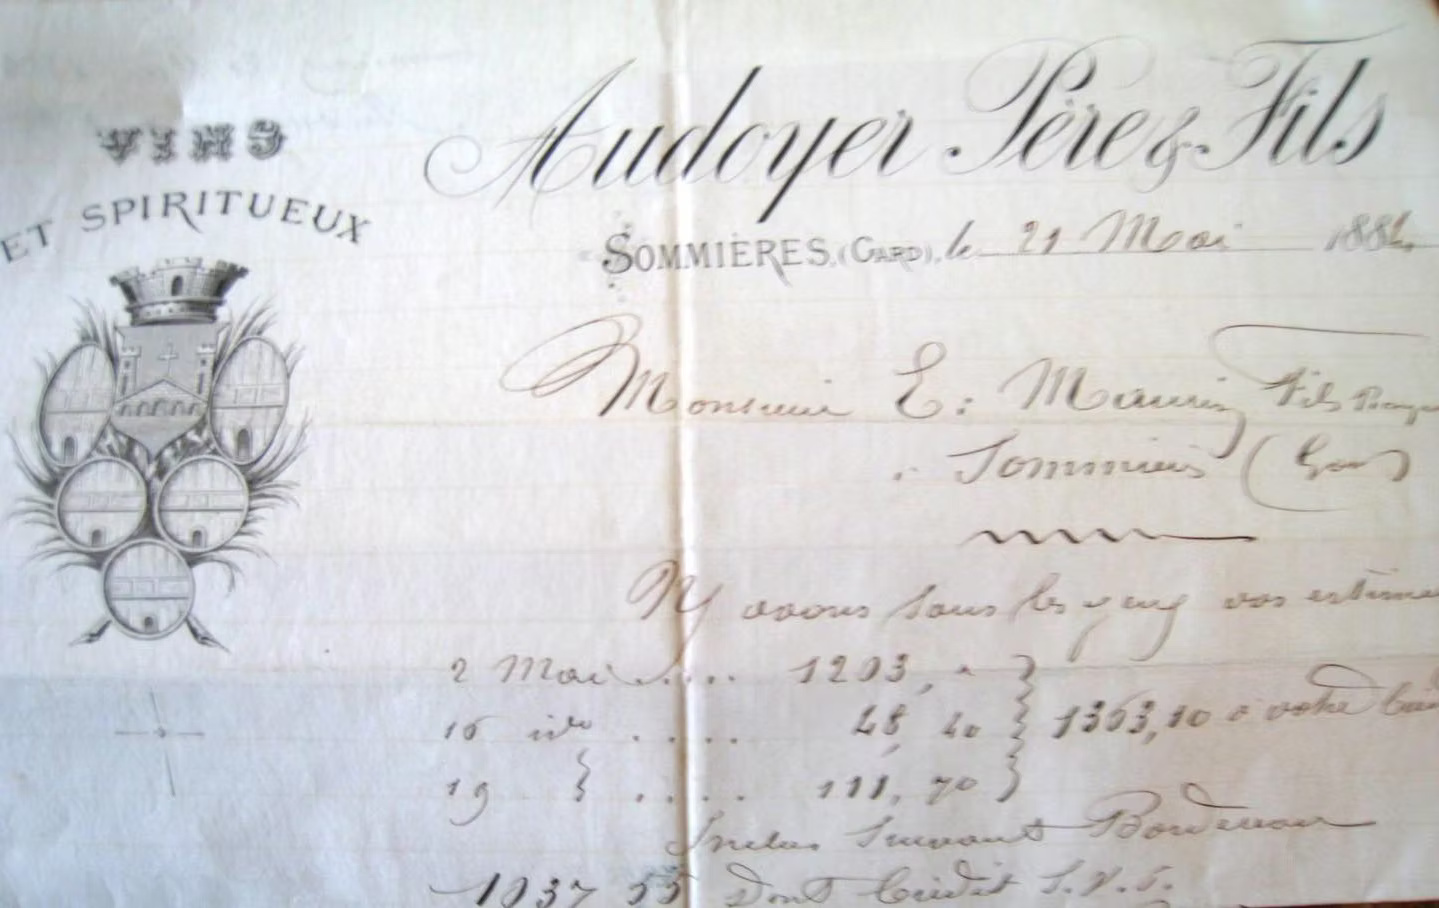 VINS
ET SPIRITUEUX
Audoyer Père & Fils
SOMMIÈRES, (GARD), le 21 Mai 1884
Monsieur E: Maurin fils
à Sommières (Gard)
Ny avons sous les yeux vos estimé
2 Mai .... 1203, "
16 id° .... 48, 40 1363,10 à votre Crédit
19 " .... 111, 70
Inclus Suivant Bordereau
1037 55 dont Crédit S.V.P.